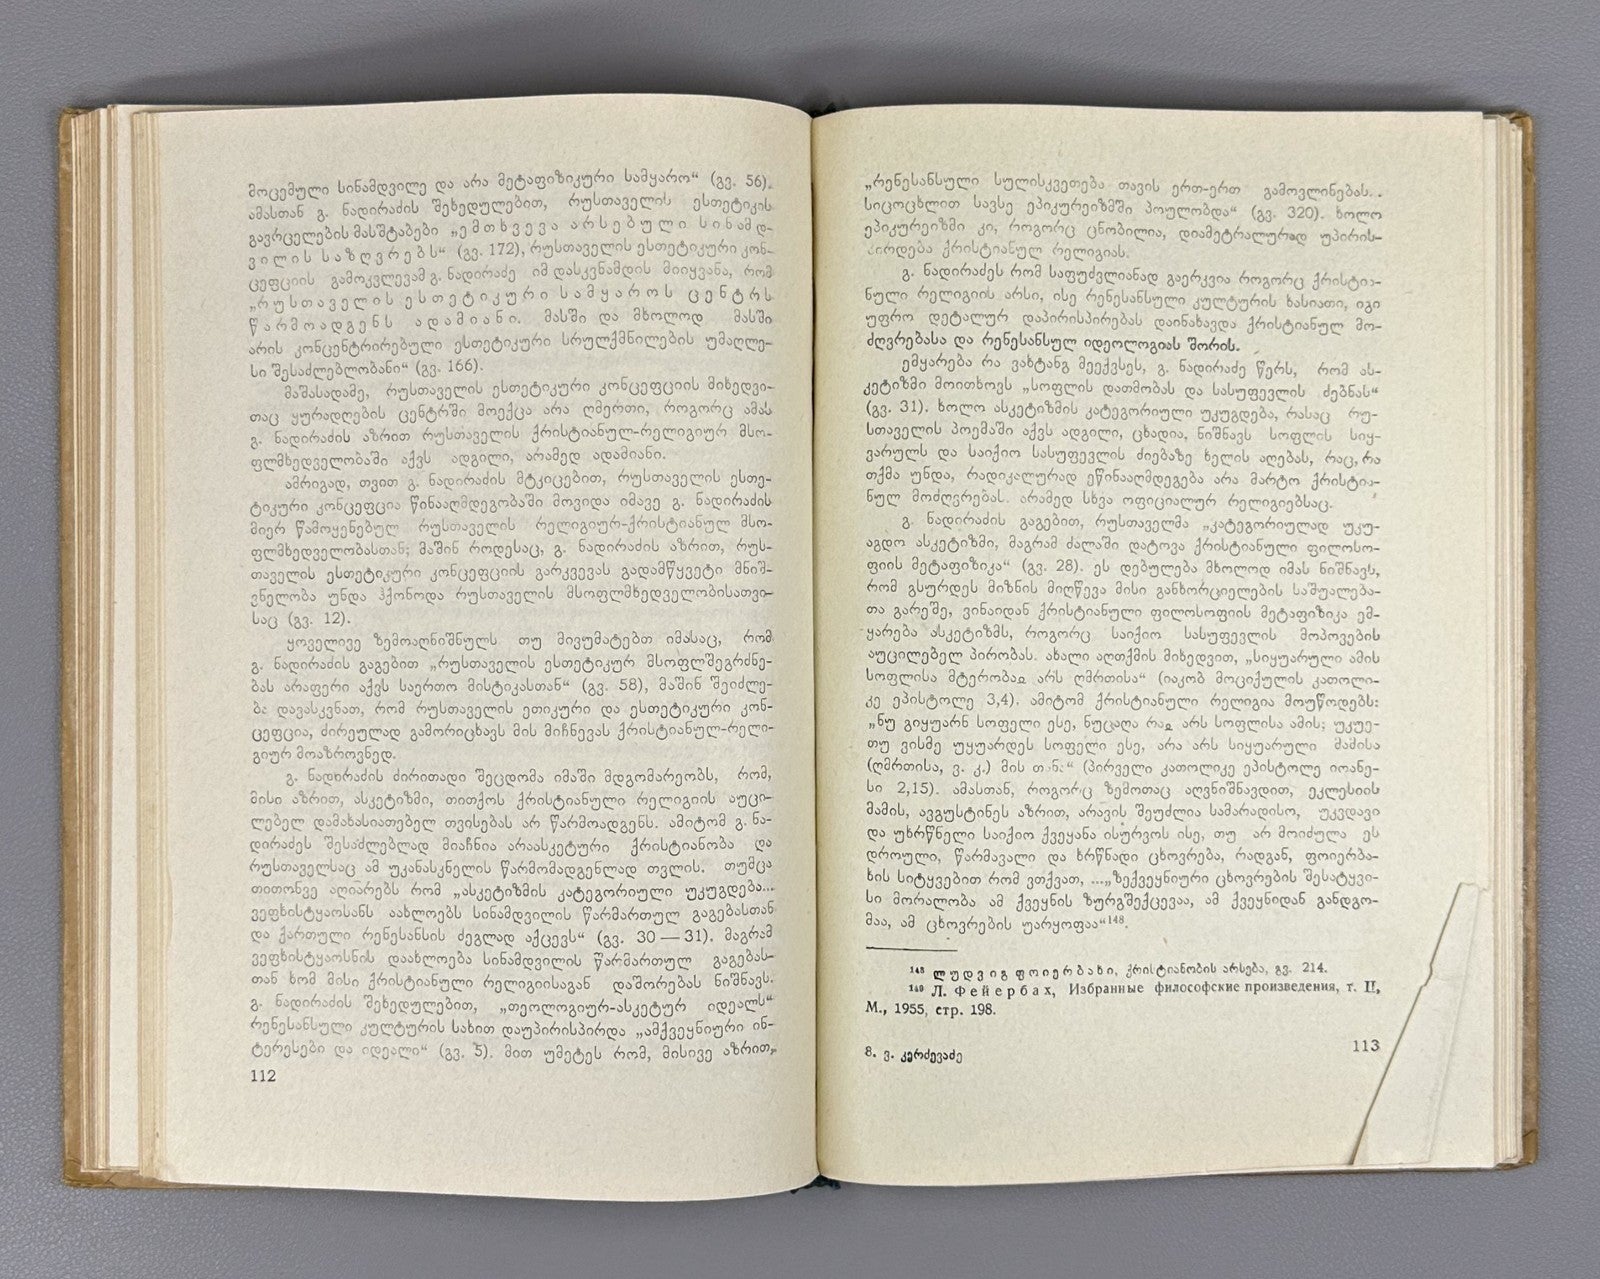 მოცემული სინამდვილე და არა მეტაფიზიკური სამყარო“ (გვ. 56).
ამასთან გ. ნადირაძის შეხედულებით, რუსთაველის ესთეტიკის
გავრცელების მასშტაბები „ემთხვევა არსებული სინამდ-
ვილის საზღვრებს“ (გვ. 172), რუსთაველის ესთეტიკური კონ-
ცეფციის გამოკვლევამ გ. ნადირაძე იმ დასკვნამდის მიიყვანა, რომ
„რუსთაველის ესთეტიკური სამყაროს ცენტრს
წარმოადგენს ადამიანი. მასში და მხოლოდ მასში
არის კონცენტრირებული ესთეტიკური სრულქმნილების უმაღლე-
სი შესაძლებლობანი“ (გვ. 166).
მაშასადამე, რუსთაველის ესთეტიკური კონცეფციის მიხედვი-
თაც ყურადღების ცენტრში მოექცა არა ღმერთი, როგორც ამას
გ. ნადირაძის აზრით რუსთაველის ქრისტიანულ-რელიგიურ მსო-
ფლმხედველობაში აქვს ადგილი, არამედ ადამიანი.
ამრიგად, თვით გ. ნადირაძის მტკიცებით, რუსთაველის ესთე-
ტიკური კონცეფცია წინააღმდეგობაში მოვიდა იმავე გ. ნადირაძის
მიერ წამოყენებულ რუსთაველის რელიგიურ-ქრისტიანულ მსო-
ფლმხედველობასთან; მაშინ როდესაც, გ. ნადირაძის აზრით, რუს-
თაველის ესთეტიკური კონცეფციის გარკვევას გადამწყვეტი მნიშ-
ვნელობა უნდა ჰქონოდა რუსთაველის მსოფლმხედველობისათვი-
საც (გვ. 12).
ყოველივე ზემოაღნიშნულს თუ მივუმატებთ იმასაც, რომ
გ. ნადირაძის გაგებით „რუსთაველის ესთეტიკურ მსოფლშეგრძნე-
ბას არაფერი აქვს საერთო მისტიკასთან“ (გვ. 58), მაშინ შეიძლე-
ბა დავასკვნათ, რომ რუსთაველის ეთიკური და ესთეტიკური კონ-
ცეფცია, ძირეულად გამორიცხავს მის მიჩნევას ქრისტიანულ-რელი-
გიურ მოაზროვნედ.
გ. ნადირაძის ძირითადი შეცდომა იმაში მდგომარეობს, რომ,
მისი აზრით, ასკეტიზმი, თითქოს ქრისტიანული რელიგიის აუცი-
ლებელ დამახასიათებელ თვისებას არ წარმოადგენს. ამიტომ გ. ნა-
დირაძეს შესაძლებლად მიაჩნია არაასკეტური ქრისტიანობა და
რუსთაველსაც ამ უკანასკნელის წარმომადგენლად თვლის. თუმცა
თითონვე აღიარებს რომ „ასკეტიზმის კატეგორიული უკუგდება...
ვეფხისტყაოსანს აახლოებს სინამდვილის წარმართულ გაგებასთან
და ქართული რენესანსის ძეგლად აქცევს“ (გვ. 30—31). მაგრამ
ვეფხისტყაოსნის დაახლოება სინამდვილის წარმართულ გაგებას-
თან ხომ მისი ქრისტიანული რელიგიისაგან დაშორებას ნიშნავს.
გ. ნადირაძის შეხედულებით, „თეოლოგიურ-ასკეტურ იდეალს“
რენესანსული კულტურის სახით დაუპირისპირდა „ამქვეყნიური ინ-
ტერესები და იდეალი“ (გვ. 5). მით უმეტეს რომ, მისივე აზრით,
112
„რენესანსული სულისკვეთება თავის ერთ-ერთ გამოვლინებას..
სიცოცხლით სავსე ეპიკურეიზმში პოულობდა“ (გვ. 320). ხოლო
ეპიკურეიზმი კი, როგორც ცნობილია, დიამეტრალურად უპირის-
პირდება ქრისტიანულ რელიგიას.
გ. ნადირაძეს რომ საფუძვლიანად გაერკვია როგორც ქრისტია-
ნული რელიგიის არსი, ისე რენესანსული კულტურის ხასიათი, იგი
უფრო დეტალურ დაპირისპირებას დაინახავდა ქრისტიანულ მო-
ძღვრებასა და რენესანსულ იდეოლოგიას შორის.
ემყარება რა ვახტანგ მეექვსეს, გ. ნადირაძე წერს, რომ ას-
კეტიზმი მოითხოვს „სოფლის დათმობას და სასუფევლის ძებნას“
(გვ. 31). ხოლო ასკეტიზმის კატეგორიული უკუგდება, რასაც რუ-
სთაველის პოემაში აქვს ადგილი, ცხადია, ნიშნავს სოფლის სიყ-
ვარულს და საიქიო სასუფევლის ძიებაზე ხელის აღებას, რაც, რა
თქმა უნდა, რადიკალურად ეწინააღმდეგება არა მარტო ქრისტია-
ნულ მოძღვრებას. არამედ სხვა ოფიციალურ რელიგიებსაც.
გ. ნადირაძის გაგებით, რუსთაველმა „კატეგორიულად უკუ-
აგდო ასკეტიზმი, მაგრამ ძალაში დატოვა ქრისტიანული ფილოსო-
ფიის მეტაფიზიკა“ (გვ. 28). ეს დებულება მხოლოდ იმას ნიშნავს,
რომ გსურდეს მიზნის მიღწევა მისი განხორციელების საშუალება-
თა გარეშე, ვინაიდან ქრისტიანული ფილოსოფიის მეტაფიზიკა ემ-
ყარება ასკეტიზმს, როგორც საიქიო სასუფევლის მოპოვების
აუცილებელ პირობას. ახალი აღთქმის მიხედვით, „სიყუარული ამის
სოფლისა მტერობაჲ არს ღმრთისა“ (იაკობ მოციქულის კათოლი-
კე ეპისტოლე 3,4). ამიტომ ქრისტიანული რელიგია მოუწოდებს:
„ნუ გიყუარნ სოფელი ესე, ნუცაღა რაჲ არს სოფლისა ამის; უკუე-
თუ ვისმე უყუარდეს სოფელი ესე, არა არს სიყუარული მამისა
(ღმრთისა, ვ. კ.) მის თანა“ (პირველი კათოლიკე ეპისტოლე იოანე-
სი 2,15). ამასთან, როგორც ზემოთაც აღვნიშნავდით, ეკლესიის
მამის, ავგუსტინეს აზრით, არავის შეუძლია სამარადისო, უკვდავი
და უხრწნელი საიქიო ქვეყანა ისურვოს ისე, თუ არ მოიძულა ეს
დროული, წარმავალი და ხრწნადი ცხოვრება, რადგან, ფოიერბა-
ხის სიტყვებით რომ ვთქვათ, ...„ზექვეყნიური ცხოვრების შესატყვი-
სი მორალობა ამ ქვეყნის ზურგშექცევაა, ამ ქვეყნიდან განდგო-
მაა, ამ ცხოვრების უარყოფაა“¹⁴⁸.
¹⁴⁸ ლუდვიგ ფოიერბახი, ქრისტიანობის არსება, გვ. 214.
¹⁴⁹ Л. Фейербах, Избранные философские произведения, т. II,
М., 1955, стр. 198.
8. ვ. კერძევაძე
113